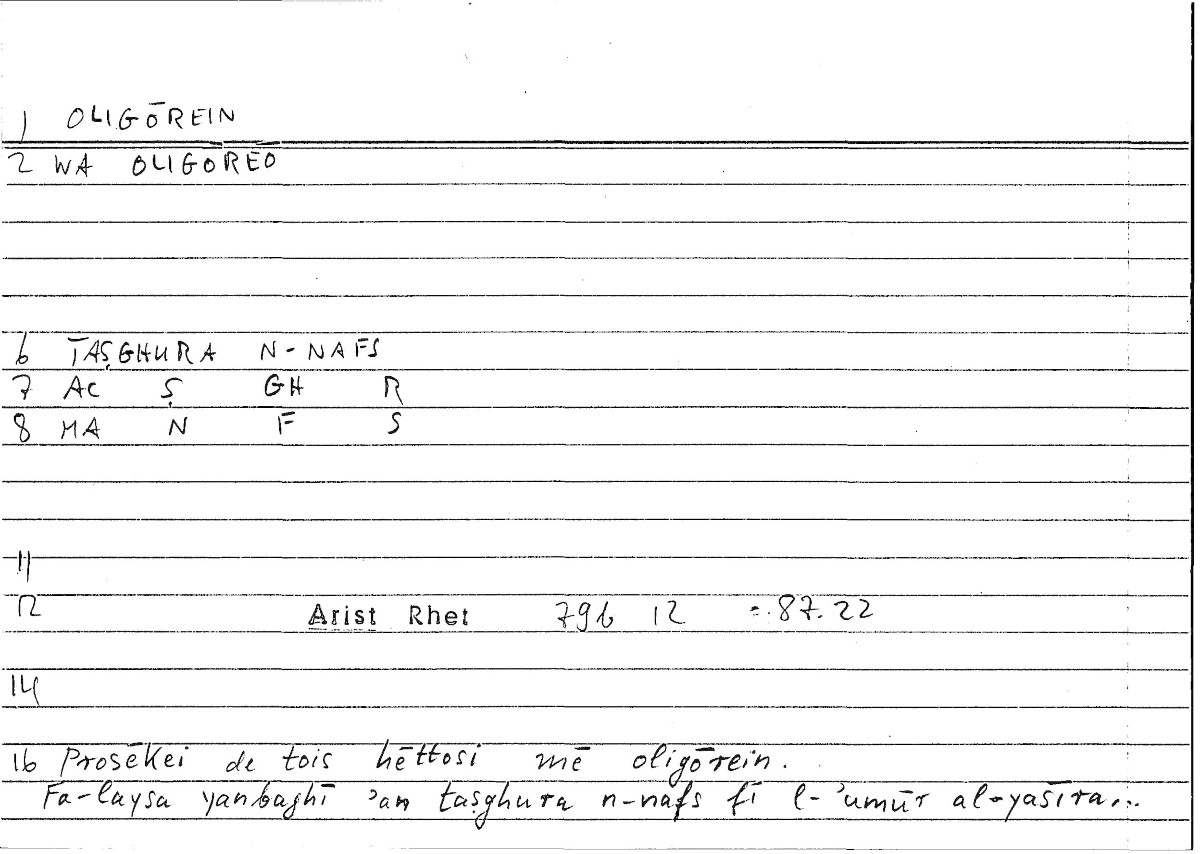 1 OLIGŌREIN
2 WA OLIGŌREŌ
6 TAṢGHURA N-NAFS
7 AC Ṣ GH R
8 MA N F S
11
12 Arist Rhet 79b 12 = 87.22
14
16 Prosēkei de tois hēttosi mē oligōrein.
Fa-laysa yanbaghī ʾan taṣghura n-nafs fī l-ʾumūr al-yasīra...